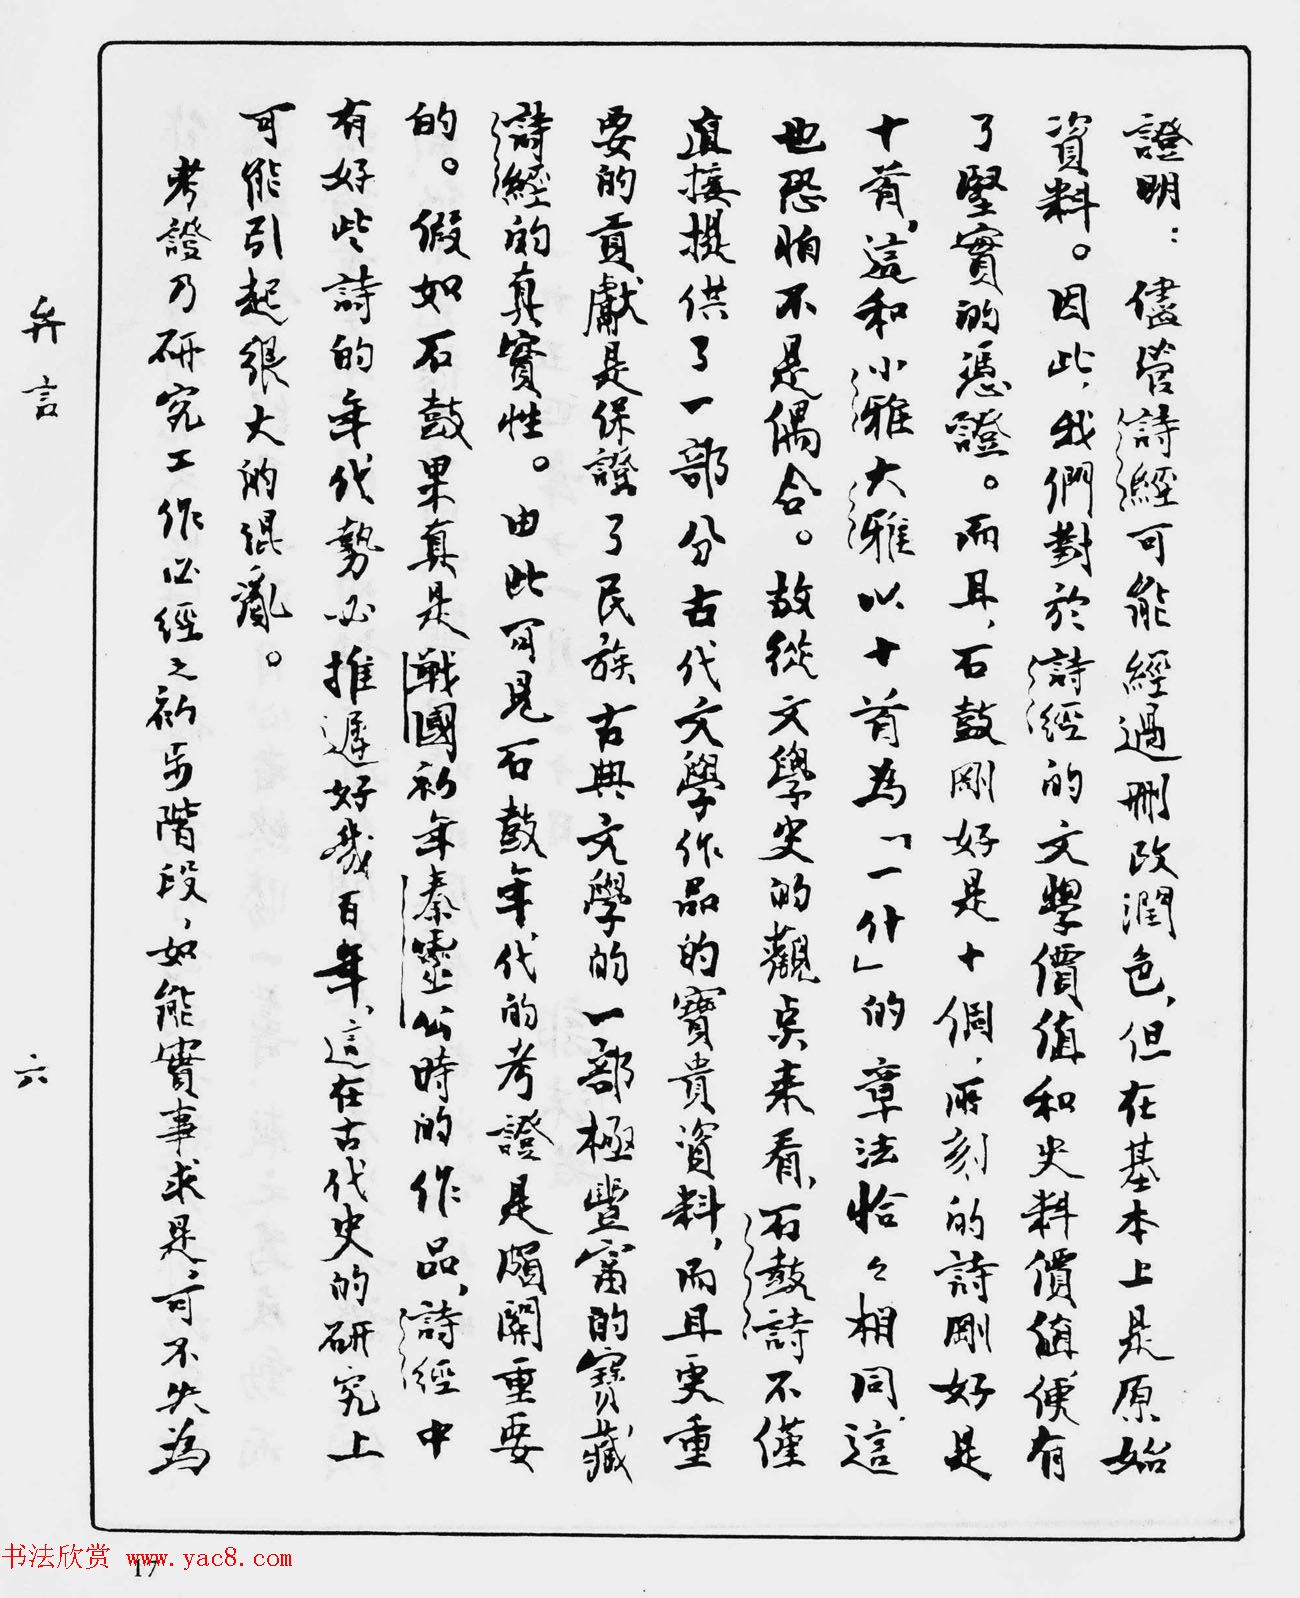 證明：儘管詩經可能經過刪改潤色，但在基本上是原始
資料。因此，我們對於詩經的文學價值和史料價值便有
了堅實的憑證。而且，石鼓剛好是十個，所刻的詩剛好是
十首，這和小雅大雅以十首為「一什」的章法恰々相同，這
也恐怕不是偶合。故從文學史的觀点来看，石鼓詩不僅
直接提供了一部分古代文學作品的寶貴資料，而且更重
要的貢獻是保證了民族古典文學的一部極豐富的寶藏
詩經的真實性。由此可見石鼓年代的考證是頗關重要
的。假如石鼓果真是戰國初年秦靈公時的作品，詩經中
有好些詩的年代勢必推遲好幾百年，這在古代史的研究上
可能引起很大的混亂。
考證乃研究工作必經之初步階段，如能實事求是，可不失為
弁言
六
17
书法欣赏 www.yac8.com